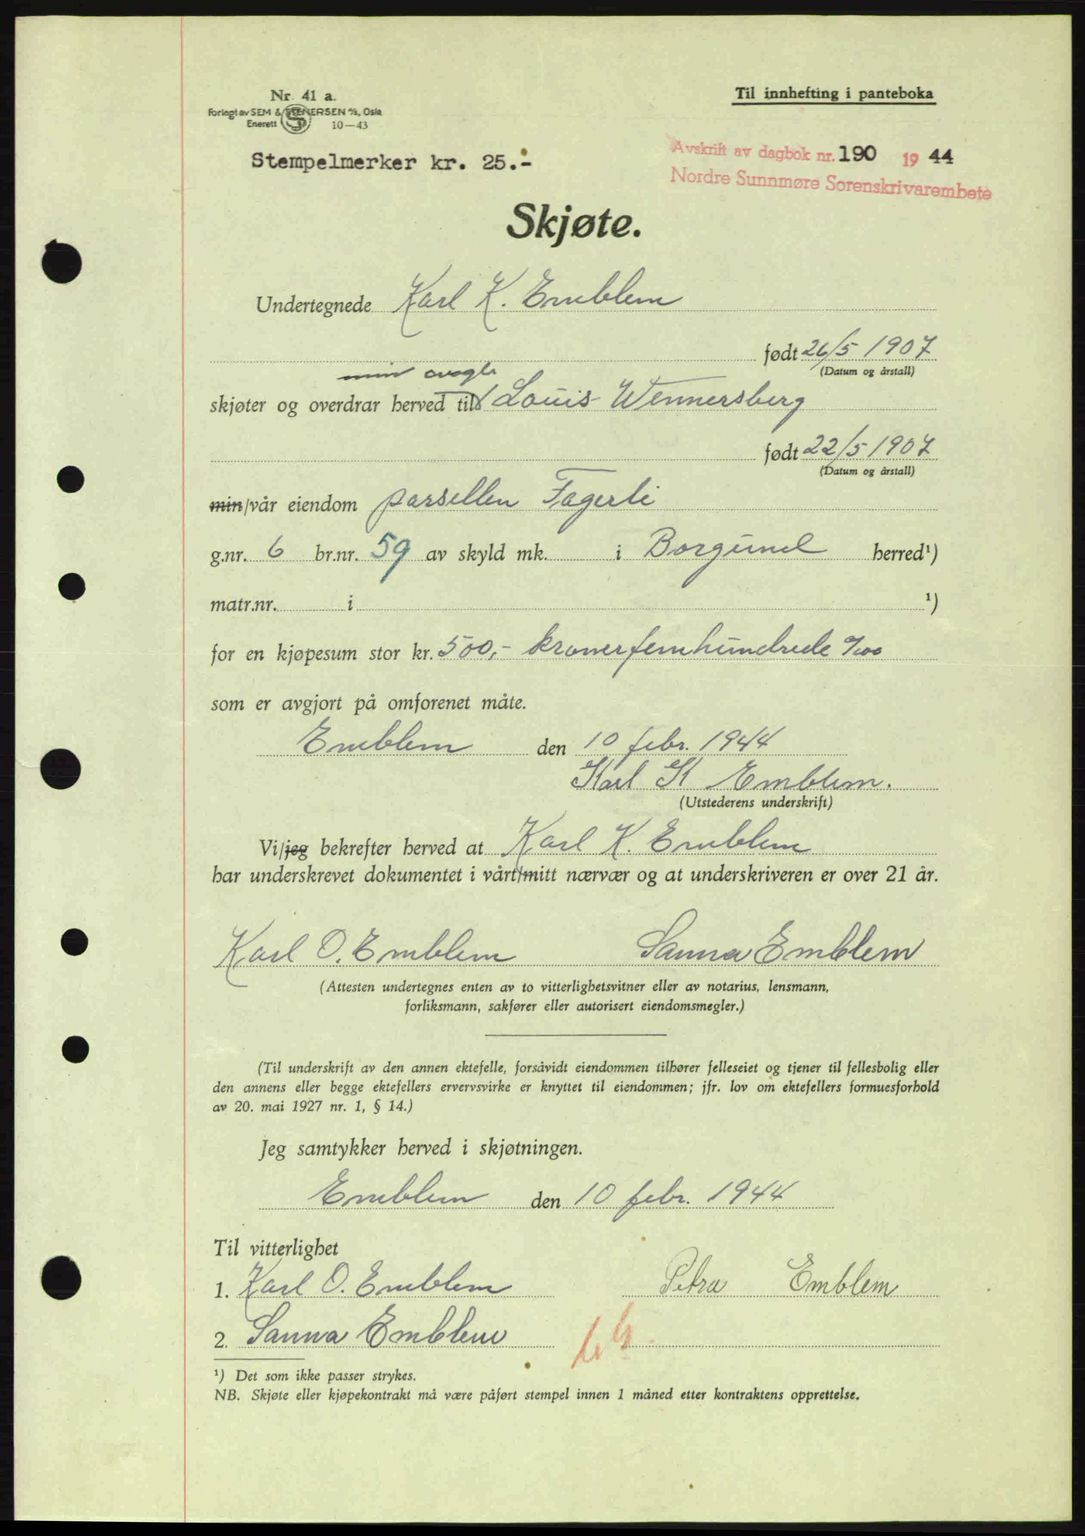 Nr. 41 a.
Forlagt av SEM & STENERSEN A/S, Oslo
Enerett 10—43
Til innhefting i panteboka
Stempelmerker kr. 25.-
Avskrift av dagbok nr. 190 19 44
Nordre Sunnmøre Sorenskrivarembete
Skjøte.
Undertegnede Karl K. Emblem
født 26/5 1907
(Datum og årstall)
min
skjøter og overdrar herved til Louis Wennersberg
født 22/5 1907
(Datum og årstall)
min/vår eiendom parsellen Fagerli
g.nr. 6 br.nr. 59 av skyld mk. i Borgund herred¹)
matr.nr. i ¹)
for en kjøpesum stor kr. 500,- kroner femhundrede 0/100
som er avgjort på omforenet måte.
Emblem den 10 febr. 1944
Karl K Emblem.
(Utstederens underskrift)
Vi/jeg bekrefter herved at Karl K. Emblem
har underskrevet dokumentet i vårt/mitt nærvær og at underskriveren er over 21 år.
Karl O. Emblem Sanna Emblem
(Attesten undertegnes enten av to vitterlighetsvitner eller av notarius, lensmann,
forliksmann, sakfører eller autorisert eiendomsmegler.)
(Til underskrift av den annen ektefelle, forsåvidt eiendommen tilhører felleseiet og tjener til fellesbolig eller
den annens eller begge ektefellers ervervsvirke er knyttet til eiendommen; jfr. lov om ektefellers formuesforhold
av 20. mai 1927 nr. 1, § 14.)
Jeg samtykker herved i skjøtningen.
Emblem den 10 febr. 1944
Til vitterlighet
1. Karl O. Emblem Petra Emblem
2. Sanna Emblem
¹) Det som ikke passer strykes.
NB. Skjøte eller kjøpekontrakt må være påført stempel innen 1 måned etter kontraktens opprettelse.